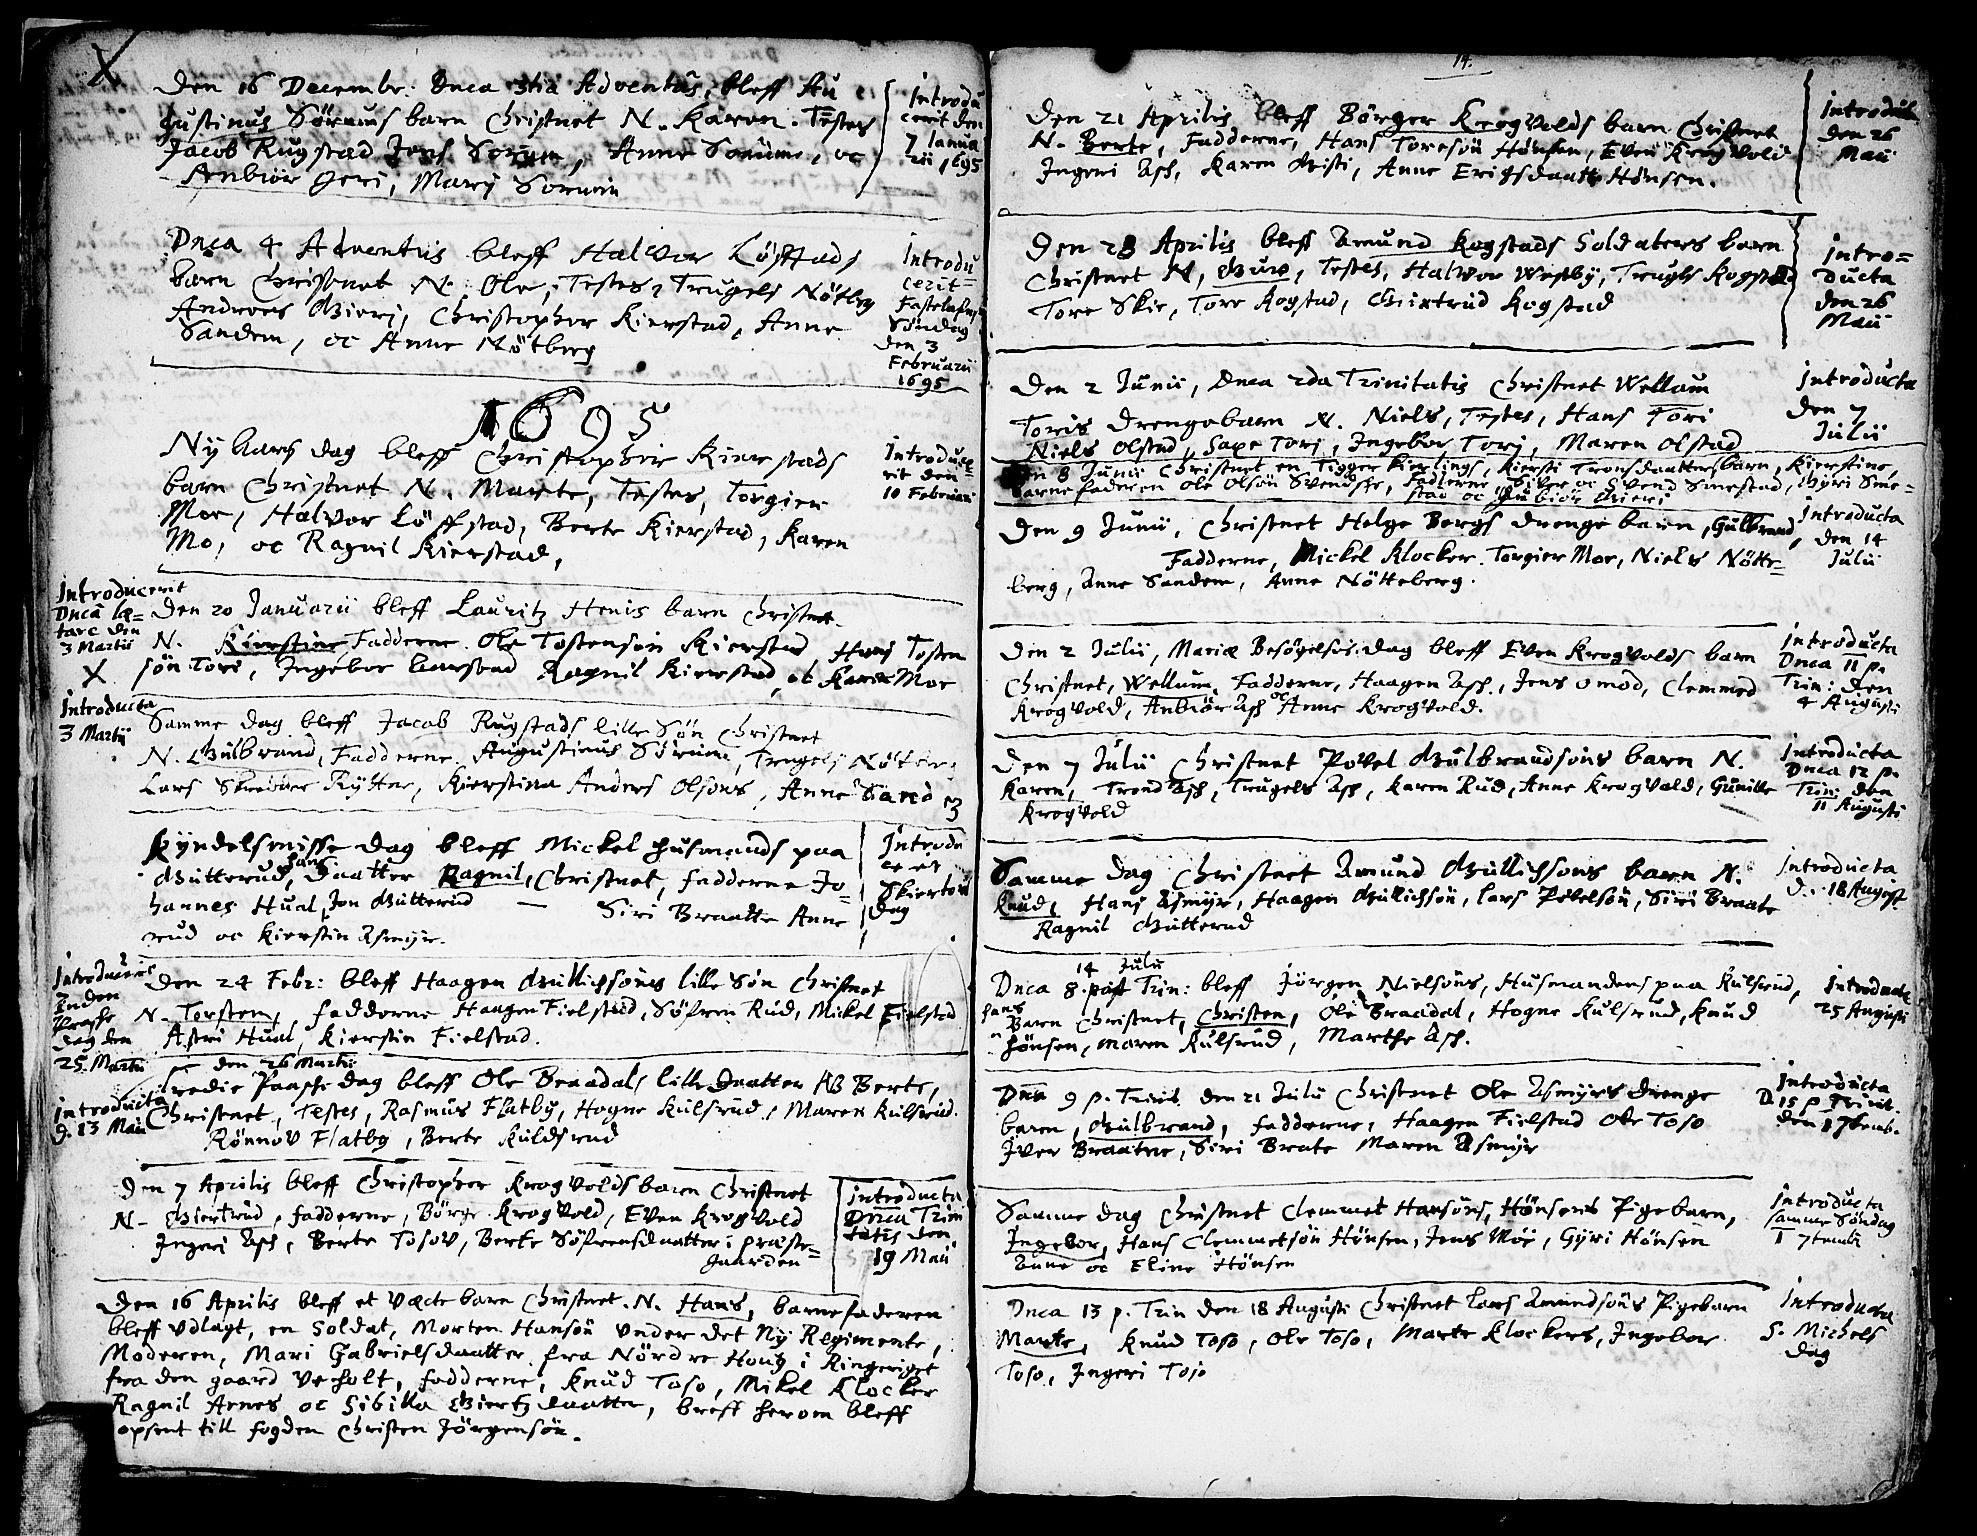 Den 16 Decembr: Dnca 3tia Adventus, bleff Au
gustinus Sörums barn Christnet N. Karen. Testes
Jacob Rugstad Jens Sorum, Anne Sorums, oc
Anbiör Geri, Mary Sorum
Introdu
cerit den
7 Janua
rii 1695
Dnca 4 Adventus bleff Halvor Löfstads
barn Christnet N. Ole, Testes, Trugels Nötberg
Andrees Gieri, Christopher Kierstad, Anne
Sandem, oc Anne Nötberg
Introdu
cerit
Fastelafns
Söndag
den 3
Februarii
1695
1695
Ny Aars dag bleff Christopher Kierstads
barn Christnet N. Marte, Testes, Torgier
Moe, Halvor Löffstad, Berte Kierstad, Karen
Mo, oc Ragnil Kierstad,
Introduce
rit den
10 Februari
Introducerit
Dnca læ=
tare den
3 Martii
X
Den 20 Januarii bleff Lauritz Henis barn Christnet
N. Kierstine Fadderne Ole Tostensön Kierstad Hans Tosten
sön Tori, Ingebor Aarstad Ragnil Kierstad, oc Karen Moe
Introducta
3 Martii
Samme dag bleff Jacob Rugstads lille Sön Christnet
N. Gulbrand, Fadderne Augustinus Sörum, Trugels Nötber
Lars Skredder Rytter, Kierstina Anders Olsöns, Anne Sand
Kyndelsmisse dag bleff Mickel Husmands paa
Gutterud, hans Daatter Ragnil, Christnet, fadderne Jo-
hannes Hual, Jon Gutterud — Siri Braatte Anne
rud oc Kierstin Asmyr.
Introdu
cerit
Skiertors
Dag
Introducerit
2 den
Paaske
dag den
25 Martii
Den 24 Febr: bleff Haagen Gullichsöns lille Sön Christnet
N. Torsten, fadderne Haagen Fielstad, Söfren Rud, Mikel Fielstad
Astri Hual, Kierstin Fielstad.
den 26 Martii
Tredie Paaske dag bleff Ole Braadals lille Daatter Berte,
Christnet, Testes, Rasmus Flatby, Hogne Kulsrud, Maren Kulsrud.
Rönnov Flatby, Berte Kuldsrud
introducta
d. 13 Maii
Den 7 Aprilis bleff Christopher Krogvolds barn Christnet
N- Giertrud, fadderne, Börge Krogvold, Even Krogvold
Ingeri Asch, Berte Tosov, Berte Söfrensdaatter i præste=
gaarden
introducta
Dnca Trini
tatis den
19 Maii
Den 16 Aprilis bleff et Vectebarn Christnet. N. Hans, barnefaderen
bleff Vdlagt, en Soldat, Morten Hansön Vnder det Ny Regimente,
Moderen, Mari Gabrielsdaatter fra Nördre Houg i Ringeriget
fra den gaard Veholt, fadderne, Knud Toso, Mikel Klocker
Ragnil Arnes oc Sibilla Giertzdaatter, breff herom bleff
opsent till fogden Christen Jörgensön.
14.
Den 21 Aprilis bleff Börger Krogvolds barn Christnet
N. Berte, Fadderne, Hans Toresön Hönsen, Even Krogvold
Ingeri Asch, Karen Aristi, Anne Erigsdaatt Hönsen.
Introduct
den 26
Maii
Den 28 Aprilis bleff Amund Kogstads Soldaters barn
Christnet N, Guro, Testes, Halvor Westby, Trugls Kogstad
Tore Skie, Tore Kogstad, Giertrud Kogstad
Intro=
ducta
den 26
Maii
Den 2 Junii, Dnca 2da Trinitatis Christnet Wellum
Toris Drengebarn N. Niels, Testes, Hans Tori
Niels Olstad, Saxe Tori, Ingebor Tori, Maren Olstad
Introducta
den 7
Julii
Den 8 Junii Christnet en Tigger Kierlings, Kiersti Tronsdaatters barn, Kierstine,
Barnefaderen Ole Olsön Svendske, Fadderne Siver oc Svend Smestad, Gyri Sme=
stad oc Gubiör Gieri
Den 9 Junii, Christnet Helge Bergs drenge barn, Gulbrand,
Fadderne, Mickel Klocker. Torgier Moe, Niels Nötte=
berg, Anne Sandem, Anne Nötteberg.
Introducta
den 14
Julii
Den 2 Julii, Mariæ Besögelses dag bleff Even Krogvolds barn
Christnet, Wellum, Fadderne, Haagen Asch, Jens Omod, Clemmed
Krogvold, Anbiör Asch oc Anne Krogvold.
Introducta
Dnca 11 p.
Trin: den
4 Augusti
Den 7 Julii Christnet Povel Gulbrandsöns barn N.
Karen, Trond Asch, Trugels Asch, Karen Rud, Anne Krogvold, Gunille
Krogvold
Introducta
Dnca 12 p.
Trin: den
11 Augusti
Samme dag Christnet Amund Gullichsöns barn N.
Knud, Hans Asmyr, Haagen Gullichsön, Lars Povelsön, Siri Braate
Ragnil Gutterud
Introducta
d. 18 August
14 Julii
Dnca 8. post Trin: bleff Jörgen Nielsöns, Husmandens paa Kulsrud,
hans Barn Christnet, Christen, Ole Braadal, Hogne Kulsrud, Knud
Hönsen, Maren Kulsrud, Marthe Asch.
introducta
25 Augusti
Dnca 9 p. Trinit. den 21 Julii Christnet Ole Asmyrs drenge
baren, Gulbrand, fadderne, Haagen Fielstad Ole Toso
Iver Braatne, Siri Brate Maren Asmyr
introducta
D. 15 p. Trinit.
den 1 7temb.
Samme dag Christnet Clemmet Hansöns, Hönsens Pigebarn,
Ingebor, Hans Clemmetsön Hönsen, Jens Moe, Gyri Hönsen
Anne oc Eline Hönsen
introducta
samme Söndag
1 7tembr
Dnca 13 p. Trin den 18 Augusti Christnet Lars Amundsöns Pigebarn
Marte, Knud Toso, Ole Toso, Marte Klockers, Ingebor
Toso, Ingeri Toso
Introducta
S. Michels
dag